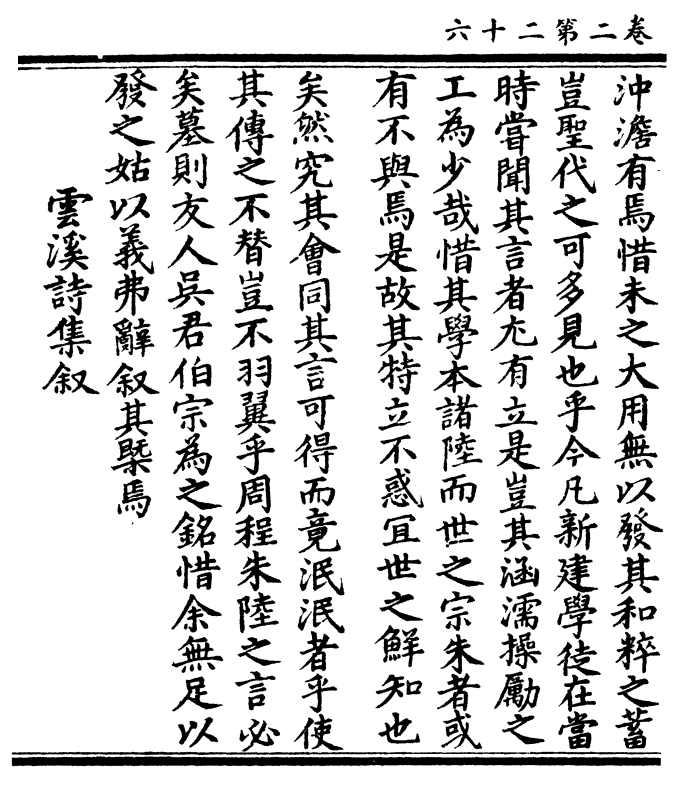 卷二第二十六
沖澹有焉惜未之大用無以發其和粹之蓄
豈聖代之可多見也乎今凡新建學徒在當
時嘗聞其言者尤有立是豈其涵濡操勵之
工為少哉惜其學本諸陸而世之宗朱者或
有不與焉是故其特立不惑冝世之鮮知也
矣然究其會同其言可得而竟泯泯者乎使
其傳之不替豈不羽翼乎周程朱陸之言必
矣墓則友人吳君伯宗為之銘惜余無足以
發之姑以義弗辭叙其槩焉
雲溪詩集叙